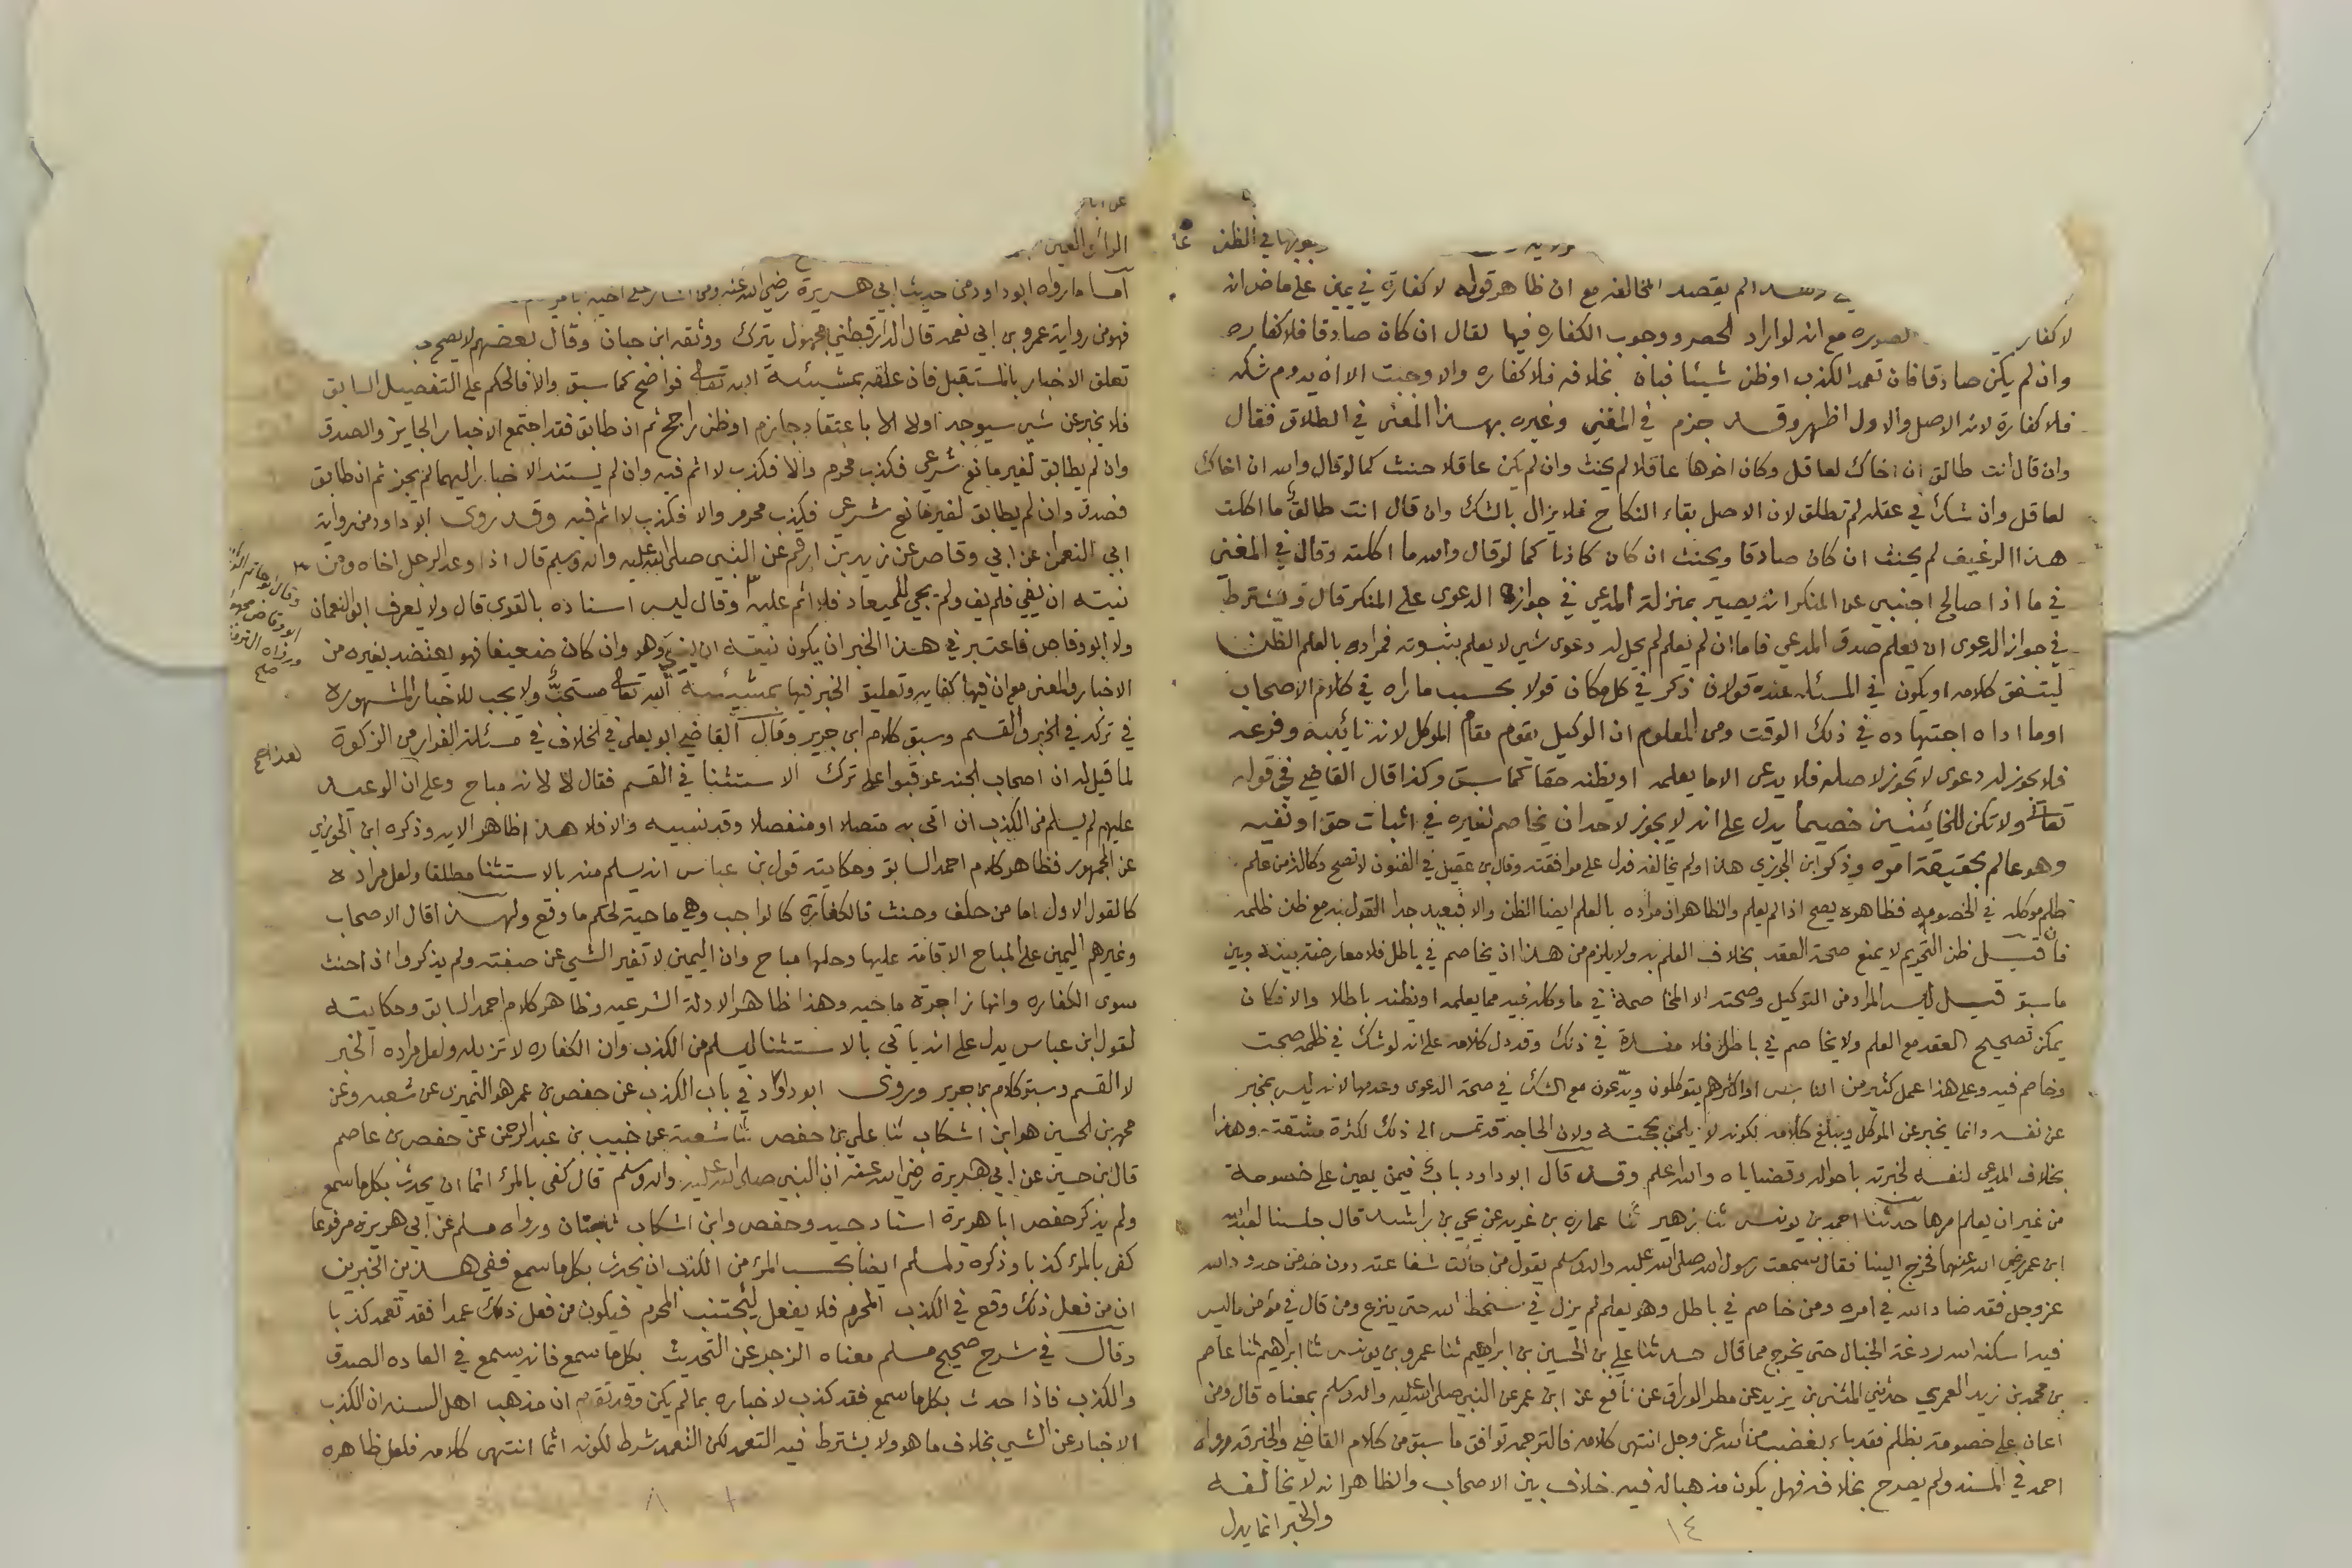 وبوبها في الظن
لم يقصد المخالفه مع ان ظاهر قوله لا كفارة في يمين على ماض انه
لا كفار الصوره مع انه لو اراد الحصر ووجوب الكفاره فيها لقال ان كان صادقا فلا كفاره
وان لم يكن صادقا فان تعمد الكذب او ظن شيئا فبان بخلافه فلا كفاره والا وجبت الا ان يدوم شكه
فلا كفارة لانه الاصل والاول اظهر وقد جزم في المغني وغيره بهذا المعنى في الطلاق فقال
وان قال انت طالق ان اخاك لعاقل وكان اخوها عاقلا لم يحنث وان لم يكن عاقلا حنث كما لو قال والله ان اخاك
لعاقل وان شك في عقله لم تطلق لان الاصل بقاء النكاح فلا يزال بالشك وان قال انت طالق ما اكلت
هذا الرغيف لم يحنث ان كان صادقا ويحنث ان كان كاذبا كما لو قال والله ما اكلته وقال في المغني
في ما اذا صالح اجنبي عن المنكر انه يصير بمنزلة المدعي في جواز الدعوى على المنكر قال ويشترط
في جواز الدعوى ان يعلم صدق المدعي فاما ان لم يعلم لم يحل له دعوى شي لا يعلم بثبوته فمراده بالعلم الظن
ليتفق كلامه او يكون في المسئله عنده قولان ذكر في كل مكان قولا بحسب ما راه في كلام الاصحاب
او ما اداه اجتهاده في ذلك الوقت ومن المعلوم ان الوكيل يقوم مقام الموكل لانه نائبه وفرعه
فلا يجوز له دعوى لا تجوز لاصله فلا يدعى الا ما يعلمه او يظنه حقا كما سبق وكذا قال القاضي في قوله
تعالى ولا تكن للخائنين خصيما يدل على انه لا يجوز لاحد ان يخاصم لغيره في اثبات حق او نفيه
وهو عالم بحقيقة امره وذكر ابن الجوزي هذا ولم يخالفه فدل على موافقته وقال بن عقيل في الفنون لا تصح وكالة من علم
ظلم موكله في الخصومه فظاهره يصح اذا لم يعلم والظاهر ان مراده بالعلم ايضا الظن والا فبعيد جدا القول به مع ظن ظلمه
فان قيل ظن التحريم لا يمنع صحة العقد بخلاف العلم به ولا يلزم من هذا ان يخاصم في باطل فلا معارضة بينه وبين
ما سبق قيل ليس المراد من التوكيل وصحته الا المخاصمة في ما وكله فيه مما يعلمه او يظنه باطلا والا فكان
يمكن تصحيح العقد مع العلم ولا يخاصم في باطل فلا مفسدة في ذلك وقد دل كلامه على انه لو شك في ظلمه صحت
وخاصم فيه وعلى هذا عمل كثير من الناس او اكثرهم يتوكلون ويدعون مع الشك في صحة الدعوى وعدمها لانه ليس بمخبر
عن نفسه وانما يخبر عن الموكل ويبلغ كلامه لكونه لا يلحن بحجته ولان الحاجة قد تمس الى ذلك لكثرة مشقته وهذا
بخلاف المدعي لنفسه لخبرته باحواله وقضاياه والله اعلم وقد قال ابو داود باب فيمن يعين على خصومة
من غير ان يعلم امرها حدثنا احمد بن يونس ثنا زهير ثنا عماره بن غزيه عن يحي بن راشد قال جلسنا لعبد الله
ابن عمر رضي الله عنهما فخرج الينا فقال سمعت رسول الله صلى الله عليه واله وسلم يقول من حالت شفاعته دون حد من حدود الله
عز وجل فقد ضاد الله في امره ومن خاصم في باطل وهو يعلم لم يزل في سخط الله حتى ينزع ومن قال في مؤمن ما ليس
فيه اسكنه الله ردغة الخبال حتى يخرج مما قال حدثنا علي بن الحسين بن ابراهيم ثنا عمرو بن يونس ثنا ابراهيم ثنا عاصم
بن محمد بن زيد العمري حدثني المثنى بن يزيد عن مطر الوراق عن نافع عن ابن عمر عن النبي صلى الله عليه واله وسلم بمعناه قال ومن
اعان على خصومة بظلم فقد باء بغضب من الله عز وجل انتهى كلامه فالترجمه توافق ما سبق من كلام القاضي والخبر قد رواه
احمد في المسند ولم يصرح بخلافه فهل يكون مذهبا له فيه خلاف بين الاصحاب والظاهر انه لا يخالفه
والخبر انما يدل
١٤
اما ما رواه ابو داود من حديث ابي هريرة رضي الله عنه ومن اشار على اخيه بامر
فهو من رواية عمرو بن ابي نعمه قال الدارقطني مجهول يترك ووثقه ابن حبان وقال بعضهم لا يصح
تعلق الاخبار بالمستقبل فان علقه بمشيئة الله تعالى فواضح كما سبق والا فالحكم على التفصيل السابق
فلا يخبر عن شي سيوجد اولا الا باعتقاد جازم او ظن راجح ثم ان طابق فقد اجتمع الاخبار الجايز والصدق
وان لم يطابق لغير مانع شرعي فكذب محرم والا فكذب لا اثم فيه وان لم يستند الاخبار اليهما لم يجز ثم ان طابق
فصدق وان لم يطابق لغير مانع شرعي فكذب محرم والا فكذب لا اثم فيه وقد روى ابو داود من رواية
ابي النعمان عن ابي وقاص عن زيد بن ارقم عن النبي صلى الله عليه واله وسلم قال اذا وعد الرجل اخاه ومن
نيته ان يفي فلم يف ولم يجي للميعاد فلا اثم عليه وقال ليس اسناده بالقوى قال ولا يعرف ابو النعمان
ولا ابو وقاص فاعتبر في هذا الخبر ان يكون نيته ان يفي وهو وان كان ضعيفا فهو يعتضد بغيره من
الاخبار والمعنى مع ان فيها كفايه وتعليق الخبر فيها بمشيئة الله تعالى مستحب ولا يجب للاخبار المشهوره
في تركه في الخبر والقسم وسبق كلام ابن جرير وقال القاضي ابو يعلى في الخلاف في مسئلة الفرار من الزكوة
لما قيل له ان اصحاب الجنه عوقبوا على ترك الاستثنا في القسم فقال لا لانه مباح وعلى ان الوعيد
عليهم لم يسلم من الكذب ان اتى به متصلا او منفصلا وقد نسيه والا فلا هذا ظاهر الايه وذكره ابن الجوزي
عن الجمهور فظاهر كلام احمد السابق وحكايته قول بن عباس انه يسلم منه بالاستثنا مطلقا ولعل مراده
كالقول الاول اما من حلف وحنث فالكفارة كالواجب وهي ماحية لحكم ما وقع ولهذا قال الاصحاب
وغيرهم اليمين على المباح الاقامة عليها وحلها مباح وان اليمين لا تغير الشي عن صفته ولم يذكروا اذا حنث
سوى الكفاره وانها زاجرة ماحيه وهذا ظاهر الادلة الشرعيه وظاهر كلام احمد السابق وحكايته
لقول ابن عباس يدل على انه ياتي بالاستثنا ليسلم من الكذب وان الكفاره لا تزيله ولعل مراده الخبر
لا القسم وسبق كلام بن جرير وروى ابو داود في باب الكذب عن حفص بن عمر هو النميري عن شعبه وعن
محمد بن الحسين هو ابن اشكاب ثنا علي بن حفص ثنا شعبة عن خبيب بن عبد الرحمن عن حفص بن عاصم
قال بن حسين عن ابي هريرة رضي الله عنه ان النبي صلى الله عليه واله وسلم قال كفى بالمرء اثما ان يحدث بكل ما سمع
ولم يذكر حفص ابا هريرة اسناد جيد وحفص وابن اشكاب ثقتان ورواه مسلم عن ابي هريرة مرفوعا
كفى بالمرء كذبا وذكره ولمسلم ايضا بحسب المرء من الكذب ان يحدث بكل ما سمع ففي هذين الخبرين
ان من فعل ذلك وقع في الكذب المحرم فلا يفعل ليجتنب المحرم فيكون من فعل ذلك عمدا فقد تعمد كذبا
وقال في شرح صحيح مسلم معناه الزجر عن التحديث بكل ما سمع فانه يسمع في العاده الصدق
والكذب فاذا حدث بكل ما سمع فقد كذب لاخباره بما لم يكن وقد تقدم ان مذهب اهل السنه ان الكذب
الاخبار عن الشي بخلاف ما هو ولا يشترط فيه التعمد لكن التعمد شرط لكونه اثما انتهى كلامه فلعل ظاهره